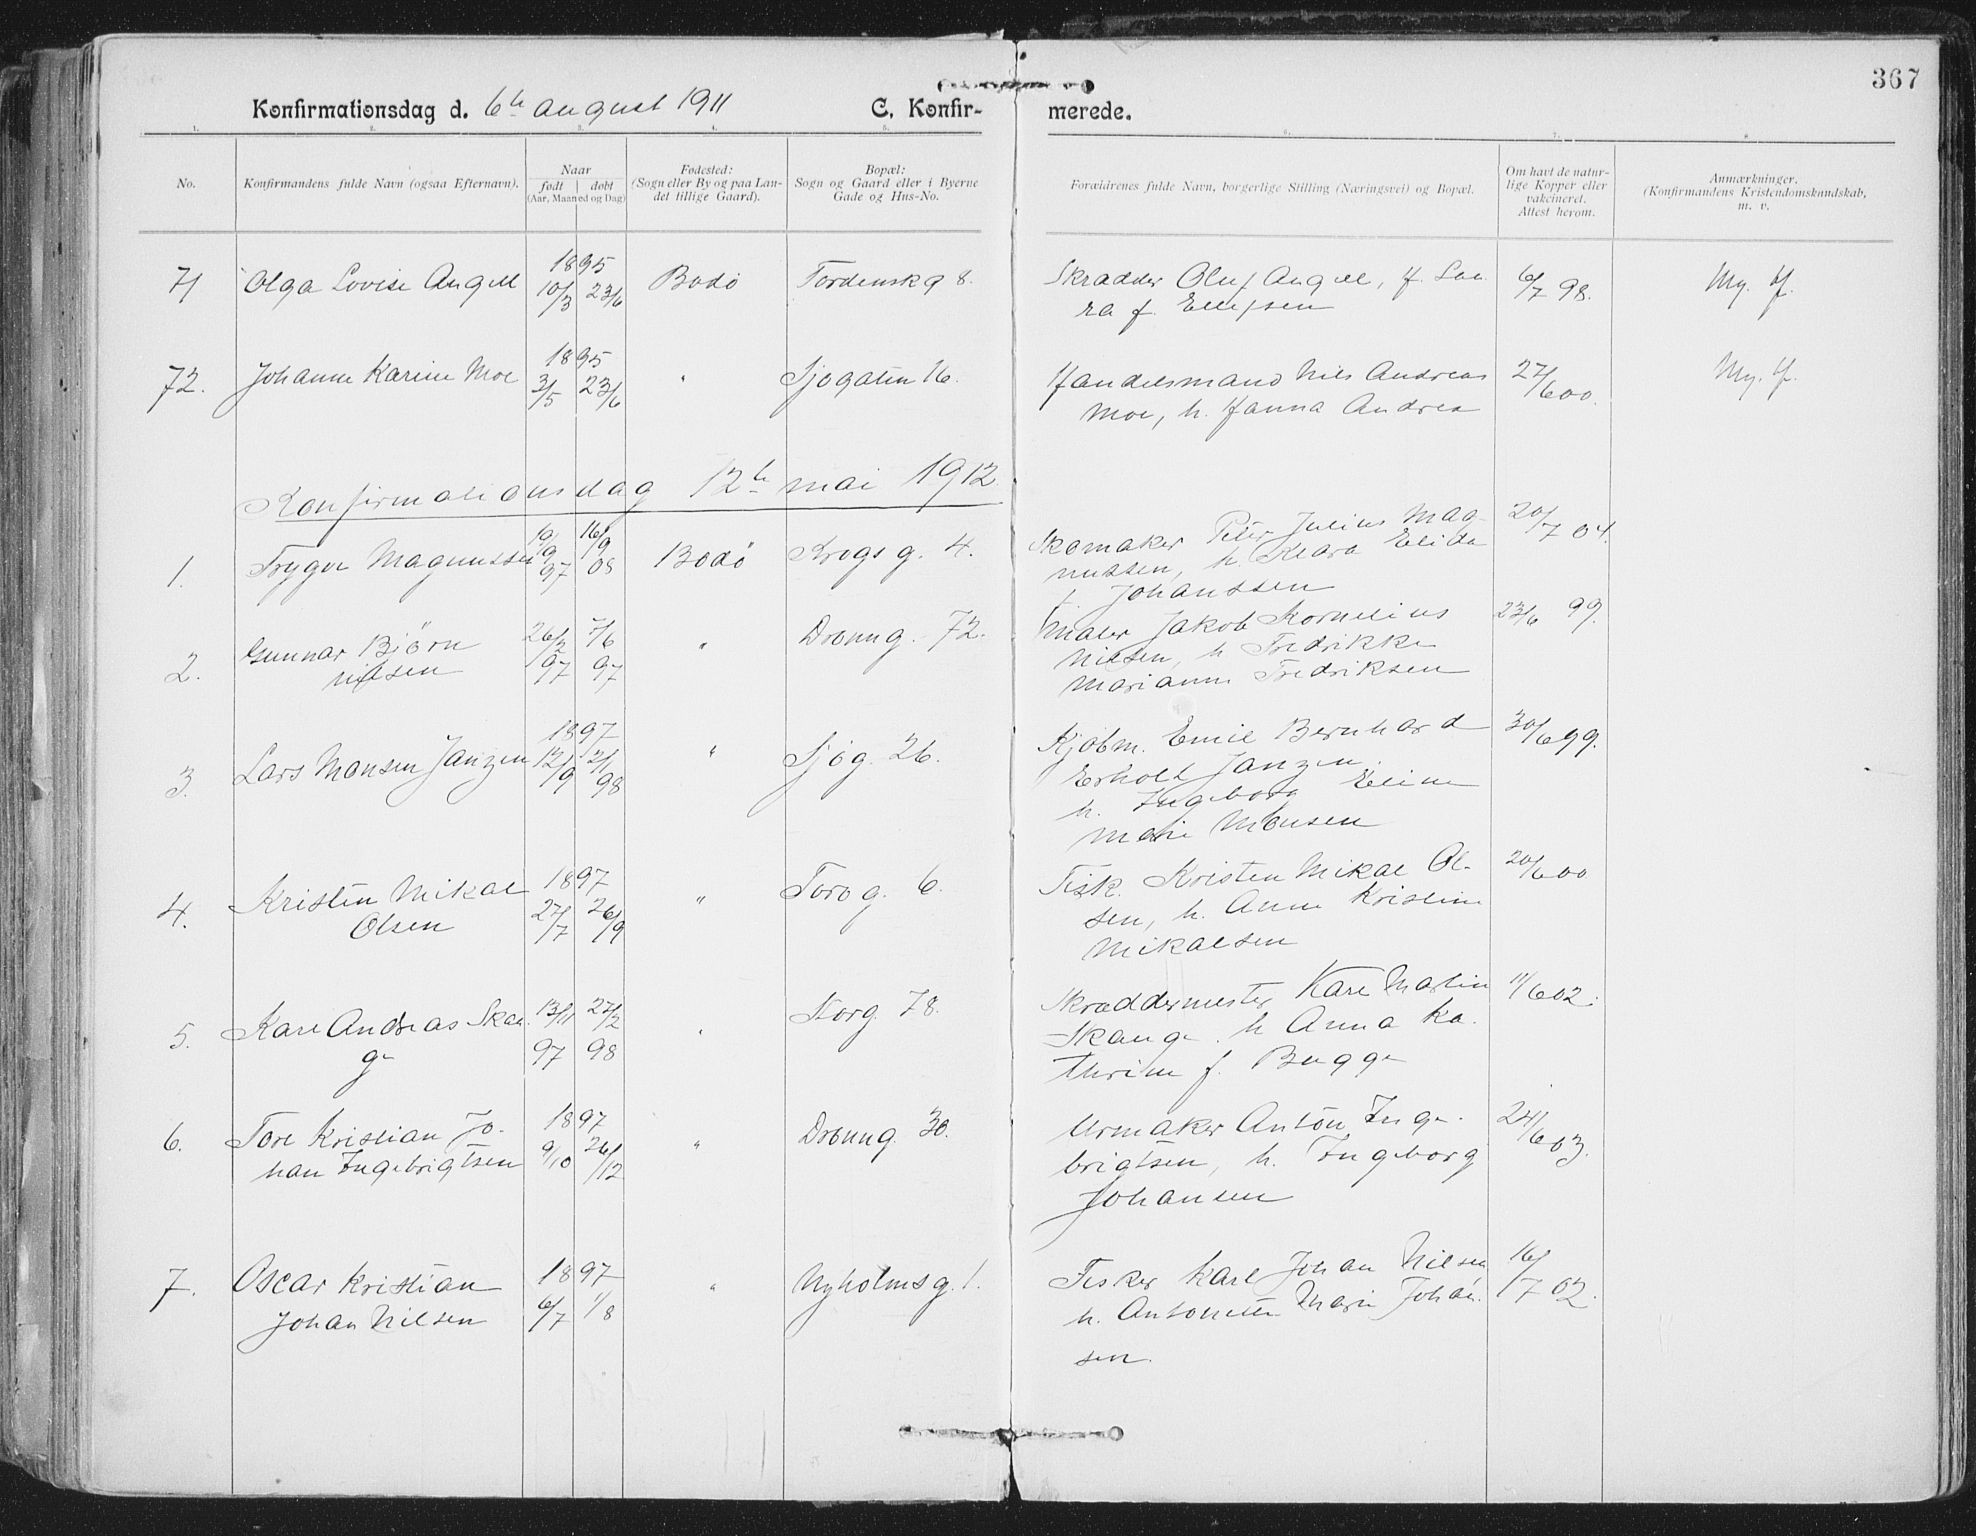 367
Konfirmationsdag d. 6te august 1911 C. Konfir- merede.
1. 2. 3. 4. 5. 6. 7. 8.
No.
Konfirmandens fulde Navn (ogsaa Efternavn).
Naar
født døbt
(Aar, Maaned og Dag)
Fødested:
(Sogn eller By og paa Lan-
det tillige Gaard).
Bopæl:
Sogn og Gaard eller i Byerne
Gade og Hus-No.
Forældrenes fulde Navn, borgerlige Stilling (Næringsvei) og Bopæl.
Om havt de natur-
lige Kopper eller
vakcineret.
Attest herom.
Anmærkninger.
(Konfirmandens Kristendomskundskab,
m. v.
71 Olga Lovise Angell 1895 10/3 23/6 Bodø Tordenskg 8. Skrædder Oluf Angell, h. Lau 6/7 98. Mg. H.
ra f. Ellefsen
72. Johanne Karine Moe 1895 3/5 23/6 " Sjøgaten 16. Handelsmand Nils Andreas 27/6 00. Mg. H.
Moe, h. Hanna Andrea
Konfirmationsdag 12te mai 1912
1. Trygve Magnussen 19/9 97 16/9 08 Bodø Krogs g. 4. Skomaker Peter Julius Mag- 20/7 04.
nussen, h. Klara Elida
f. Johanssen
2. Gunnar Bjørn 26/2 97 7/6 97 " Dronng. 72. Maler Jakob Kornelius 23/6 99.
Nilsen
Nilsen, h Fredrikke
Marianne Fredriksen
3. Lars Monsen Janzen 1897 12/9 2/1 98 " Sjøg. 26. Kjøbm. Emil Bernhard 30/6 99.
Erholt Janzen
h. Ingeborg Eline
Marie Monsen
4. Kristen Mikal 1897 27/7 26/9 " Torvg. 6. Fisk. Kristen Mikal Ol- 20/6 00
Olsen
sen, h. Anne Kristine
Mikalsen
5. Karl Andreas Skau 13/11 97 27/2 98 " Storg. 78. Skræddermester Karl Martin 11/6 02.
ge
Skauge. h Anna Ka
thrine f. Bugge
6. Tore Kristian Jo- 1897 9/10 26/12 " Dronng. 30. Urmaker Anton Inge- 24/6 03.
han Ingebrigtsen
brigtsen, h. Ingeborg
Johansen
7. Oscar Kristian 1897 6/7 1/8 " Nyholmsg. 1. Fisker Karl Johan Nilsen 16/7 02.
Johan Nilsen
h. Antonette Marie Johan
sen.